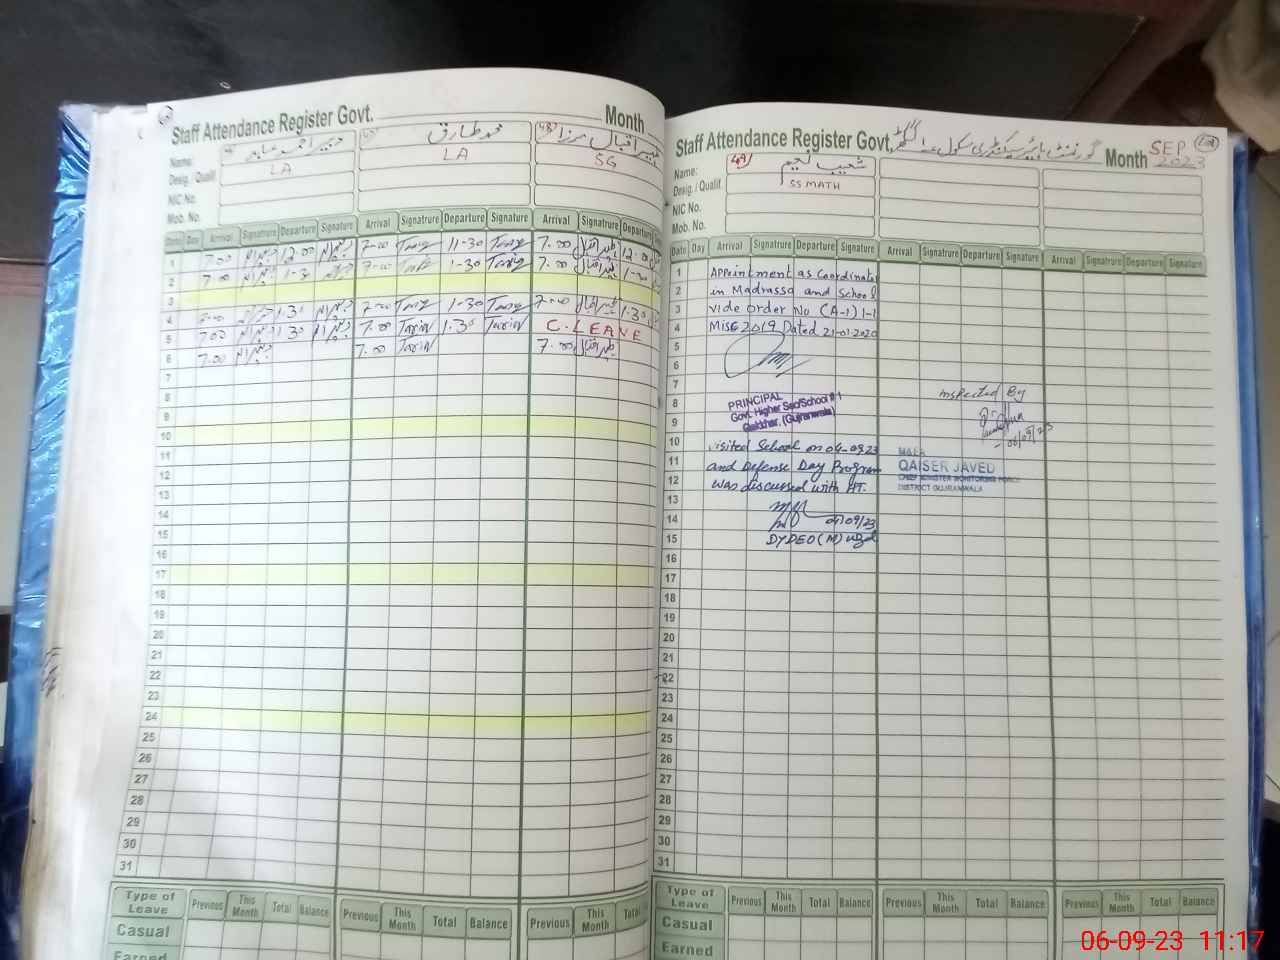 Staff Attendance Register Govt. Month
Name: محمد طارق
Desig. / Qualif. LA LA SG
NIC No.
Mob. No.
Date Day Arrival Signatrure Departure Signature Arrival Signatrure Departure Signature Arrival Signatrure Departure
1 7.00 12.00 7-00 Tariq 11-30 Tariq 7.00 12.00
2 7.00 1-3 7-00 1-30 Tariq 7.00 1-30
3
4 7-00 1.30 7-00 Tariq 1-30 Tariq 7-00 1.30
5 7.00 1.30 7.00 Tariq 1.30 Tariq C. LEAVE
6 7.00 7.00 Tariq 7.00
7
8
9
10
11
12
13
14
15
16
17
18
19
20
21
22
23
24
25
26
27
28
29
30
31
Type of Leave Previous This Month Total Balance Previous This Month Total Balance Previous This Month Total
Casual
Earned
Staff Attendance Register Govt. گورنمنٹ ہائیر سیکنڈری سکول Month SEP 2023
Name: 49 شعیب نعیم
Desig. / Qualif. SS MATH
NIC No.
Mob. No.
Date Day Arrival Signatrure Departure Signature Arrival Signatrure Departure Signature Arrival Signatrure Departure Signature
1 Appointment as Coordinator
2 in Madrassa and School
3 vide order No (A-1) 1-1
4 Misc 2019 Dated 21-01-2020
5
6
7
8 PRINCIPAL Inspected By
9 Govt. Higher Sec/School # 1
Gakkhar, (Gujranwala) 06/09/23
10 visited School on 04-09-23 M&EA
11 and Defense Day Program QAISER JAVED
12 was discussed with HT. CHIEF MINISTER MONITORING FORCE
DISTRICT GUJRANWALA
13
14 04/09/23
15 DYDEO (M) wzd
16
17
18
19
20
21
22
23
24
25
26
27
28
29
30
31
Type of Leave Previous This Month Total Balance Previous This Month Total Balance Previous This Month Total Balance
Casual
Earned
06-09-23 11:17